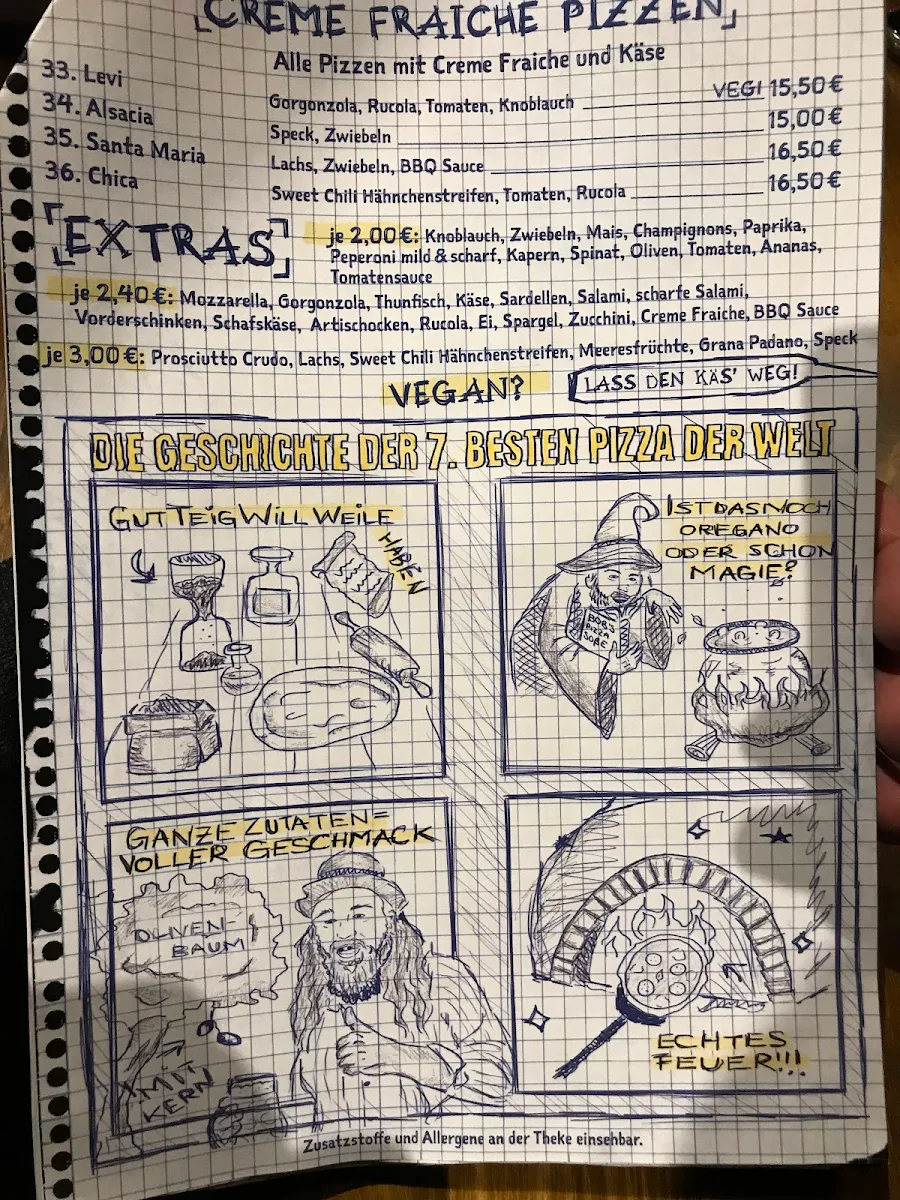 CREME FRAICHE PIZZEN
Alle Pizzen mit Creme Fraiche und Käse
33. Levi Gorgonzola, Rucola, Tomaten, Knoblauch VEGI 15,50 €
34. Alsacia Speck, Zwiebeln 15,00 €
35. Santa Maria Lachs, Zwiebeln, BBQ Sauce 16,50 €
36. Chica Sweet Chili Hähnchenstreifen, Tomaten, Rucola 16,50 €
EXTRAS
je 2,00 €: Knoblauch, Zwiebeln, Mais, Champignons, Paprika,
Peperoni mild & scharf, Kapern, Spinat, Oliven, Tomaten, Ananas,
Tomatensauce
je 2,40 €: Mozzarella, Gorgonzola, Thunfisch, Käse, Sardellen, Salami, scharfe Salami,
Vorderschinken, Schafskäse, Artischocken, Rucola, Ei, Spargel, Zucchini, Creme Fraiche, BBQ Sauce
je 3,00 €: Prosciutto Crudo, Lachs, Sweet Chili Hähnchenstreifen, Meeresfrüchte, Grana Padano, Speck
VEGAN? LASS DEN KÄS' WEG!
DIE GESCHICHTE DER 7. BESTEN PIZZA DER WELT
GUT TEIG WILL WEILE
HABEN
IST DAS NOCH
OREGANO
ODER SCHON
MAGIE?
BOB'S
PIZZA
SOßE
GANZE ZUTATEN=
VOLLER GESCHMACK
OLIVEN-
BAUM
MIT
KERN
ECHTES
FEUER!!!
Zusatzstoffe und Allergene an der Theke einsehbar.